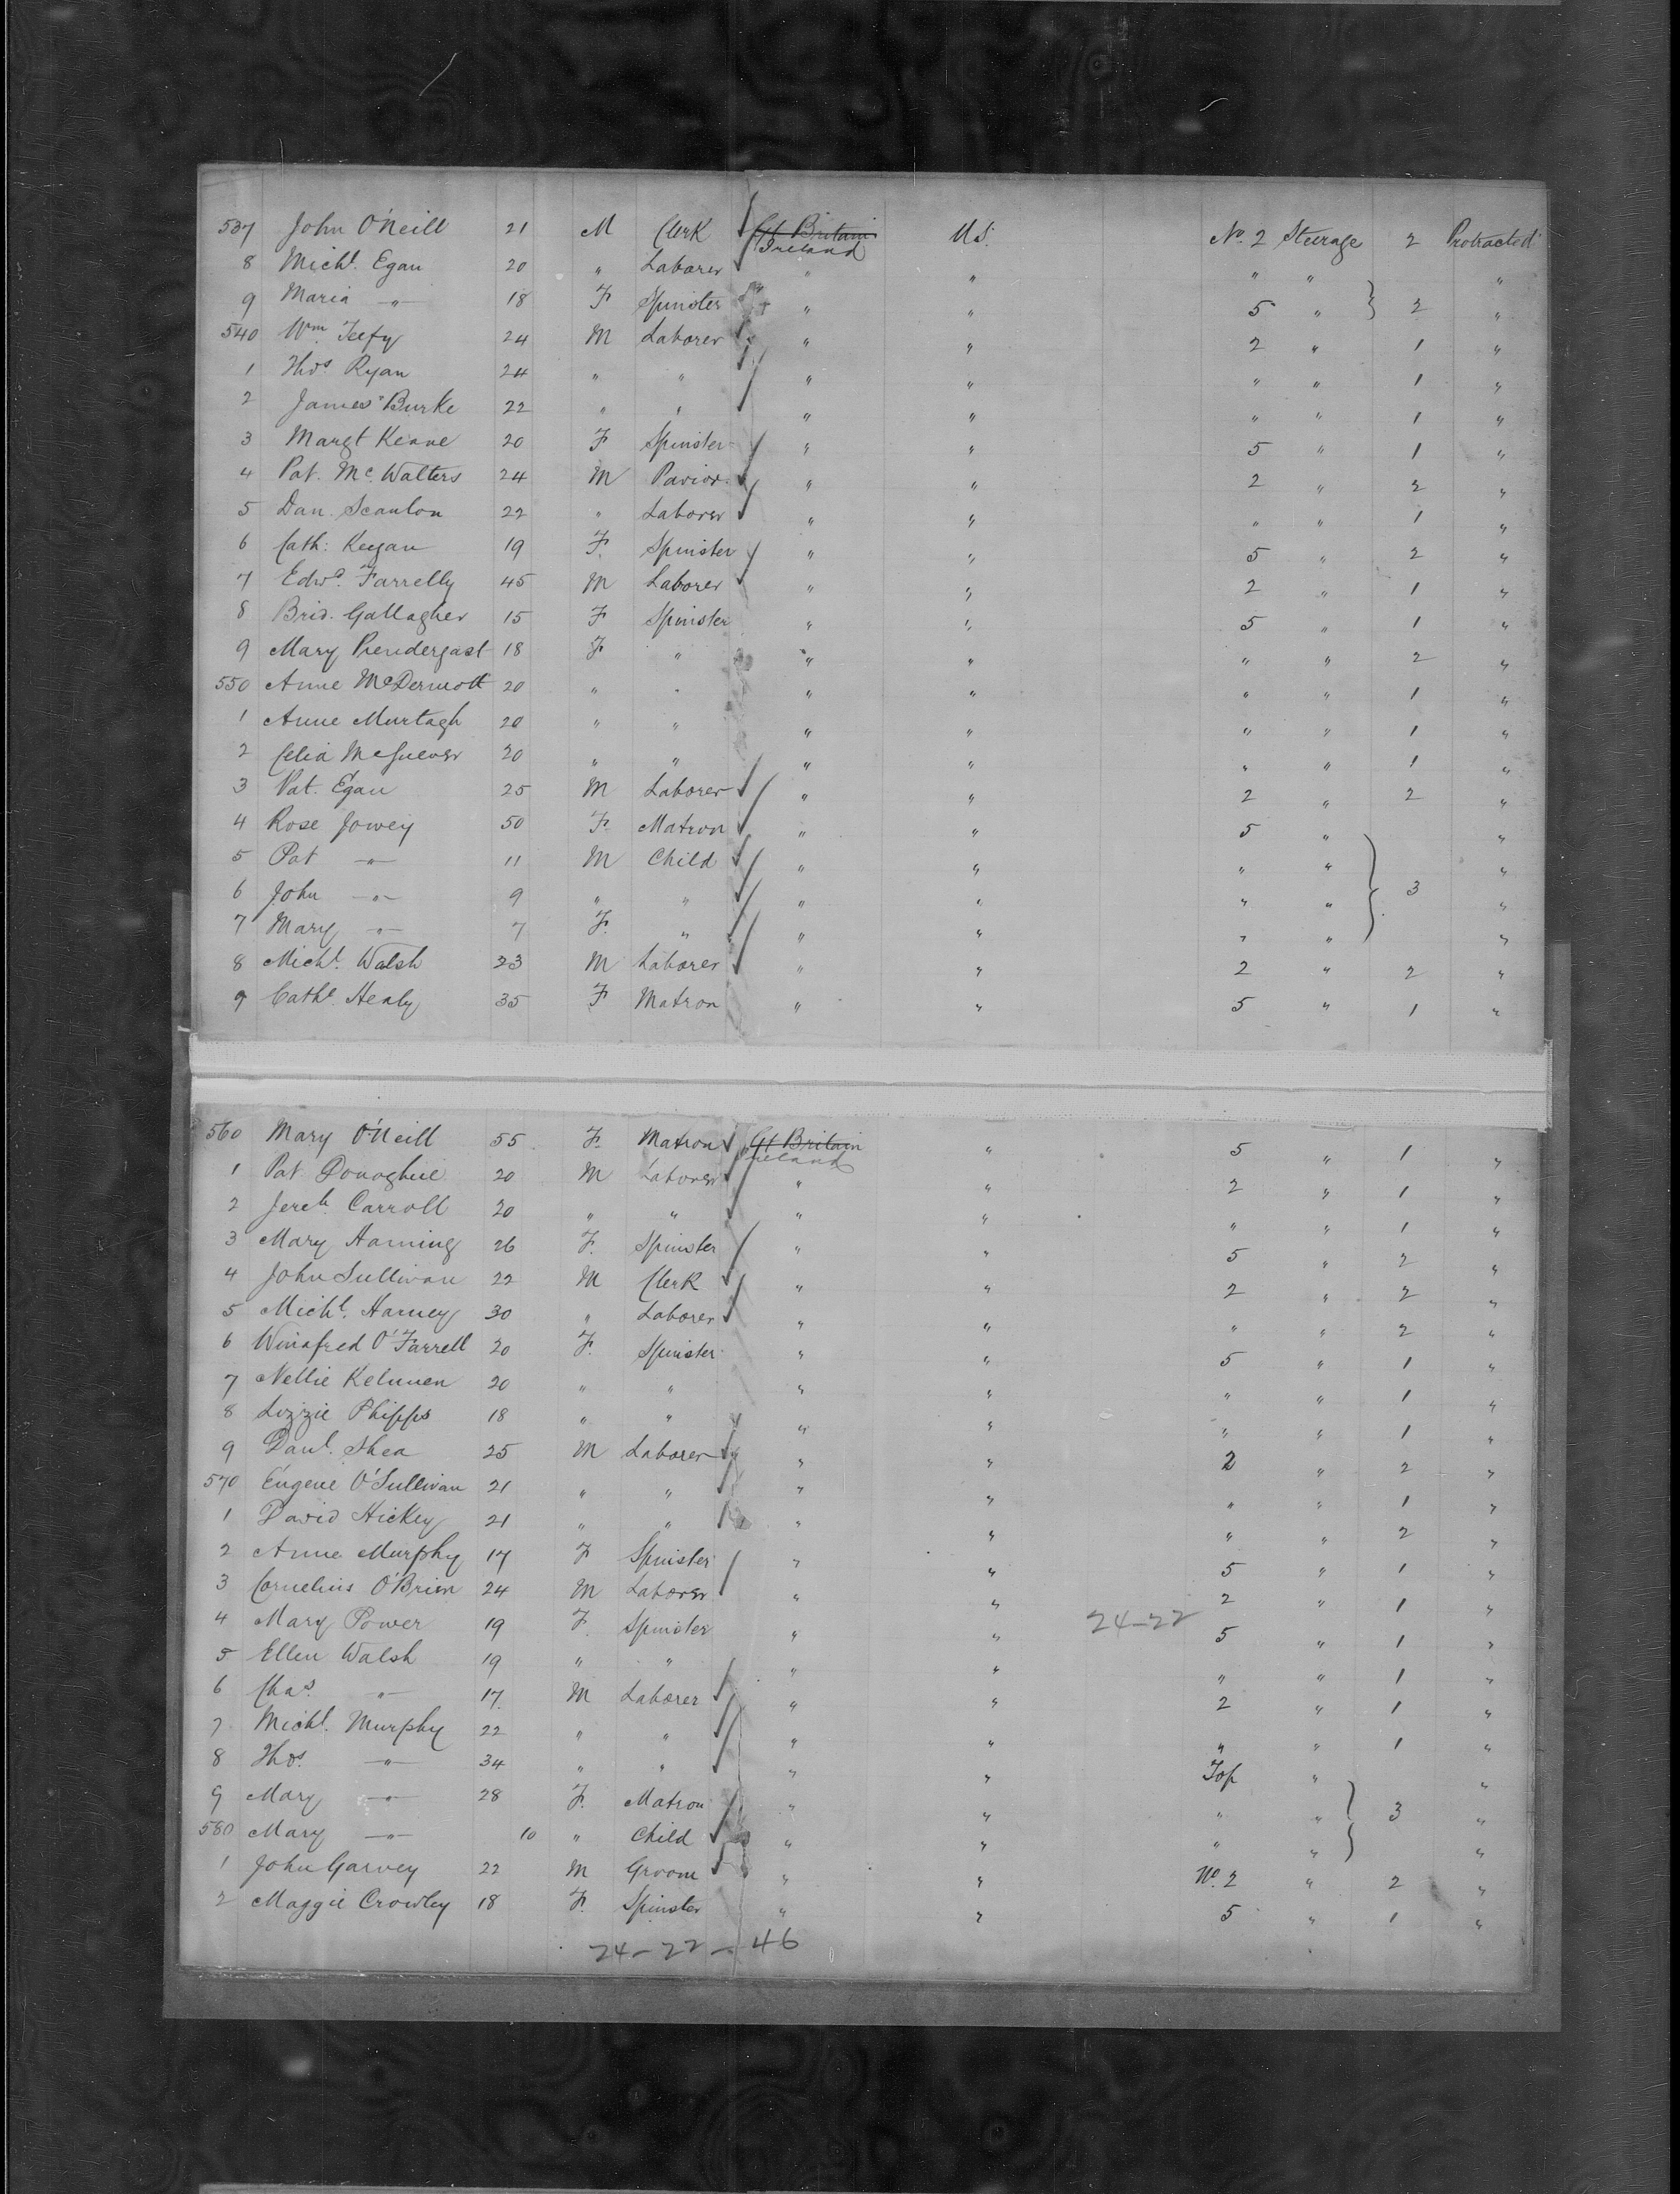 537 John O'Neill 21 M Clerk Gt Britain Ireland U.S. No. 2 Steerage 2 Protracted
8 Michl. Egan 20 " Laborer " " " " "
9 Maria —"— 18 F Spinster " " 5 " } 2 "
540 Wm. Teefy 24 M Laborer " " 2 " 1 "
1 Thos. Ryan 24 " " " " " " 1 "
2 James Burke 22 " " " " " " 1 "
3 Margt Keane 20 F Spinster " " 5 " 1 "
4 Pat. McWalters 24 M Pavior " " 2 " 2 "
5 Dan. Scanlon 22 " Laborer " " " " 1 "
6 Cath: Keegan 19 F. Spinster " " 5 " 2 "
7 Edwd. Farrelly 45 M Laborer " " 2 " 1 "
8 Brid. Gallagher 15 F Spinster " " 5 " 1 "
9 Mary Prendergast 18 F " " " " " 2 "
550 Anne McDermott 20 " " " " " " 1 "
1 Anne Murtagh 20 " " " " " " 1 "
2 Celia 20 " " " " " " 1 "
3 Pat. Egan 25 M Laborer " " 2 " 2 "
4 Rose 50 F. Matron " " 5 " "
5 Pat —"— 11 M Child " " " " "
6 John —"— 9 " " " " " " } 3 "
7 Mary —"— 7 F. " " " " " "
8 Michl. Walsh 23 M Laborer " " 2 " 2 "
9 Cathe Healy 35 F Matron " " 5 " 1 "
560 Mary O'Neill 55 F. Matron Gt Britain Ireland " 5 " 1 "
1 Pat Donoghue 20 M Laborer " " 2 " 1 "
2 Jereh. Carroll 20 " " " " " " 1 "
3 Mary 26 F. Spinster " " 5 " 2 "
4 John Sullivan 22 M Clerk " " 2 " 2 "
5 Michl. Harney 30 " Laborer " " " " 2 "
6 Winifred O'Farrell 20 F. Spinster " " 5 " 1 "
7 Nellie 20 " " " " " " 1 "
8 Lizzie Phipps 18 " " " " " " 1 "
9 Danl. Shea 25 M Laborer " " 2 " 2 "
570 Eugene O'Sullivan 21 " " " " " " 1 "
1 David Hickey 21 " " " " " " 2 "
2 Anne Murphy 17 F Spinster " " 5 " 1 "
3 Cornelius O'Brien 24 M Laborer " " 2 " 1 "
4 Mary Power 19 F. Spinster " " 24-22 5 " 1 "
5 Ellen Walsh 19 " " " " " " 1 "
6 Chas. —"— 17 M Laborer " " 2 " 1 "
7 Michl. Murphy 22 " " " " " " 1 "
8 Thos. —"— 34 " " " " Top " "
9 Mary —"— 28 F. Matron " " " " } 3 "
580 Mary —"— 10 " Child " " " " "
1 John Garvey 22 M Groom " " No. 2 " 2 "
2 Maggie Crowley 18 F. Spinster " " 5 " 1 "
24-22-46